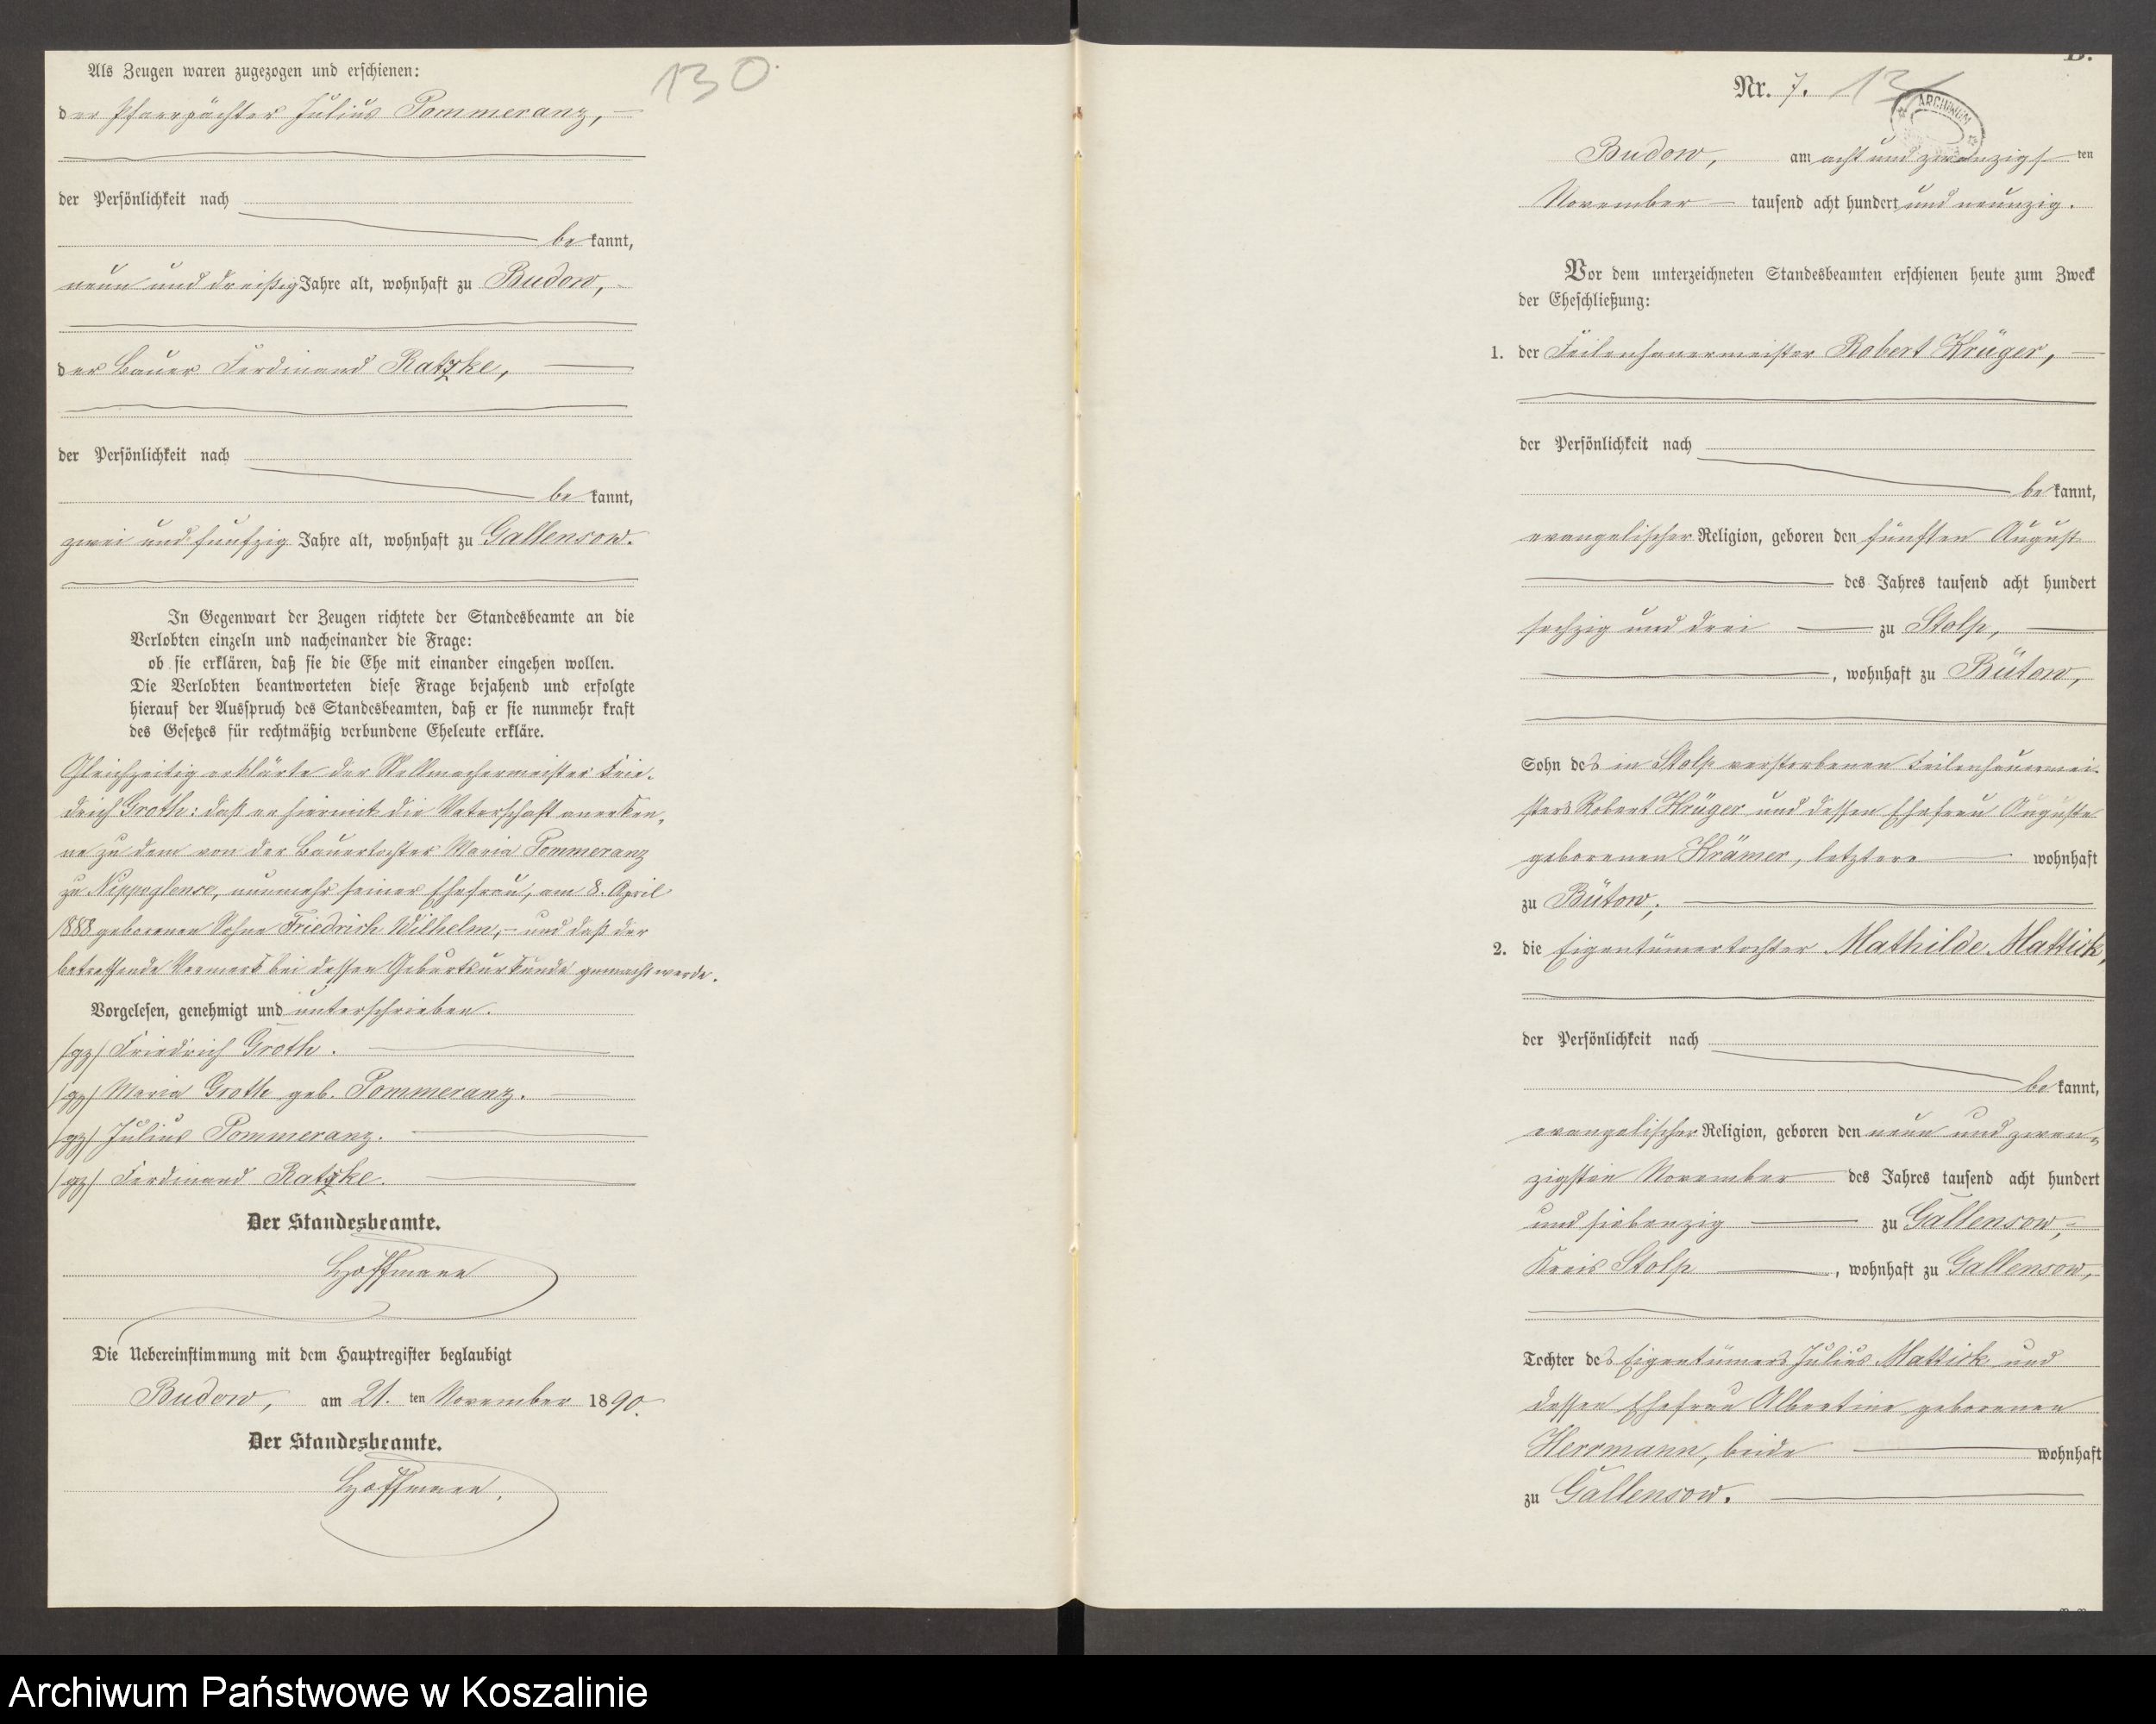 Als Zeugen waren zugezogen und erschienen:
130
der Pfarrpächter Julius Pommeranz,
der Persönlichkeit nach
bekannt,
neun und dreißig Jahre alt, wohnhaft zu Budow,
der Bauer Ferdinand Ratzke,
der Persönlichkeit nach
bekannt,
zwei und funfzig Jahre alt, wohnhaft zu Gallensow.
In Gegenwart der Zeugen richtete der Standesbeamte an die
Verlobten einzeln und nacheinander die Frage:
ob sie erklären, daß sie die Ehe mit einander eingehen wollen.
Die Verlobten beantworteten diese Frage bejahend und erfolgte
hierauf der Ausspruch des Standesbeamten, daß er sie nunmehr kraft
des Gesetzes für rechtmäßig verbundene Eheleute erkläre.
Gleichzeitig erklärte der Stellmachermeister Frie-
drich Groth: daß er hiermit die Vaterschaft anerken-
ne zu dem von der Bauertochter Maria Pommeranz
zu Nippoglense, nunmehr seiner Ehefrau, am 8. April
1888 geborenen Sohne Friedrich Wilhelm, und daß der
betreffende Vermerk bei dessen Geburtsurkunde gemacht werde.
Vorgelesen, genehmigt und unterschrieben.
/gz/ Friedrich Groth.
/gz/ Maria Groth geb. Pommeranz.
/gz/ Julius Pommeranz.
/gz/ Ferdinand Ratzke.
Der Standesbeamte.
Hoffmann
Die Uebereinstimmung mit dem Hauptregister beglaubigt
Budow, am 21. ten November 1890.
Der Standesbeamte.
Hoffmann.
B.
Nr. 7.
ARCHIWUM
Budow, am acht und zwanzigsten
November tausend acht hundert und neunzig.
Vor dem unterzeichneten Standesbeamten erschienen heute zum Zweck
der Eheschließung:
1. der Feilenhauermeister Robert Krüger,
der Persönlichkeit nach
bekannt,
evangelischer Religion, geboren den fünften August
des Jahres tausend acht hundert
sechzig und drei zu Stolp,
, wohnhaft zu Bütow,
Sohn des in Stolp verstorbenen Feilenhauermei-
sters Robert Krüger und dessen Ehefrau Auguste
geborenen Krämer, letztere wohnhaft
zu Bütow;
2. die Eigentümertochter Mathilde Mattick,
der Persönlichkeit nach
bekannt,
evangelischer Religion, geboren den neun und zwan-
zigsten November des Jahres tausend acht hundert
und siebenzig zu Gallensow,
Kreis Stolp, wohnhaft zu Gallensow,
Tochter des Eigentümers Julius Mattick und
dessen Ehefrau Albertine geborenen
Herrmann, beide wohnhaft
zu Gallensow.
Archiwum Państwowe w Koszalinie